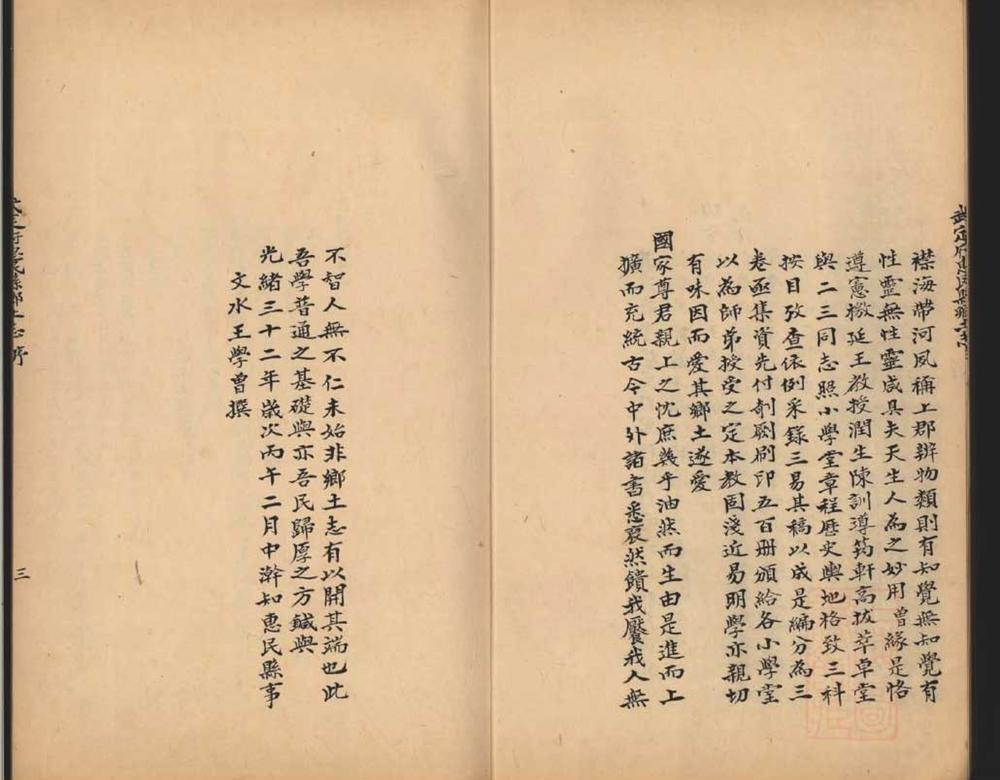 襟海帶河夙稱上郡辨物類則有知覺無知覺有
性靈無性靈咸具夫天生人為之妙用曾緣是恪
遵憲檄延王教授潤生陳訓導筠軒高拔萃卓堂
與二三同志照小學堂章程歷史輿地格致三科
按目攷查依例采錄三易其稿以成是編分為三
卷亟集資先付剞劂刷印五百冊頒給各小學堂
以為師弟授受之定本教固淺近易明學亦親切
有味因而愛其鄉土遂愛
國家尊君親上之忱庶幾乎油然而生由是進而上
擴而充統古今中外諸書悉裒然饋我饜我人無
不智人無不仁未始非鄉土志有以開其端也此
吾學普通之基礎與亦吾民歸厚之方鍼與
光緒三十二年歲次丙午二月中澣知惠民縣事
文水王學曾撰
三